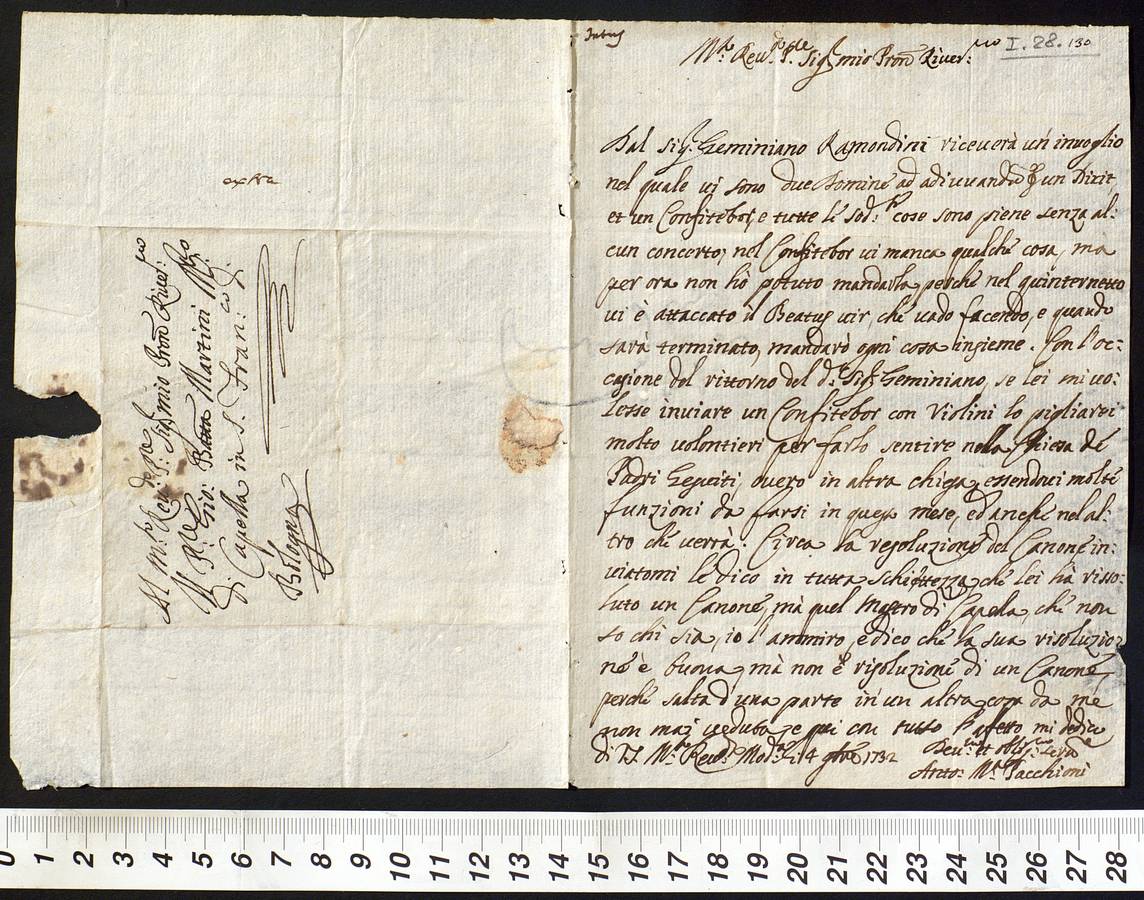 extra
Al M.to Rev.do P.re Sig.r mio Pron River.mo
Il P. Gio: Batta Martini M.ro
di Capella in S. Fran:co d.
Bologna
Intus
I. 28. 130
M.to Rev.do P.re Sig.r mio Pron River:mo
Dal Sig.r Geminiano Ramondini riceverà un invoglio
nel quale vi sono due Domine ad adiuvandũ un Dixit,
et un Confitebor, e tutte le sod.te cose sono piene senza al:
cun concerto; nel Confitebor vi manca qualche cosa, mà
per ora non hò potuto mandarla perche nel quinternetto
vi è attaccato il Beatus vir, che vado facendo, e quando
sarà terminato, mandarò ogni cosa insieme. Con l'oc:
casione del rittorno del d.o Sig.r Geminiano, se lei mi vo:
lesse inviare un Confitebor con Violini lo pigliarei
molto volontieri per farlo sentire nella Chiesa de
Padri Gesuiti, overo in altra chiesa, essendovi molte
funzioni da farsi in questo mese, ed anche nel al:
tro che verrà. Circa la resoluzione del Canone in:
viatomi le dico in tutta schiettezza, che lei hà risso:
luto un Canone, mà quel Mastro di Capella, che non
so chi sia, io l'ammiro, e dico che la sua risoluzio:
ne è buona, mà non è risoluzione di un Canone,
perche salta d'una parte in un altra, cosa da me
non mai veduta, e qui con tutto l'afetto mi dedico
di V.S. M.to Rev.da Mod.a li 4 9bre 1732
Dev.mo et obl.mo Serv.e
Anto: M.a Pacchioni
0 1 2 3 4 5 6 7 8 9 10 11 12 13 14 15 16 17 18 19 20 21 22 23 24 25 26 27 28